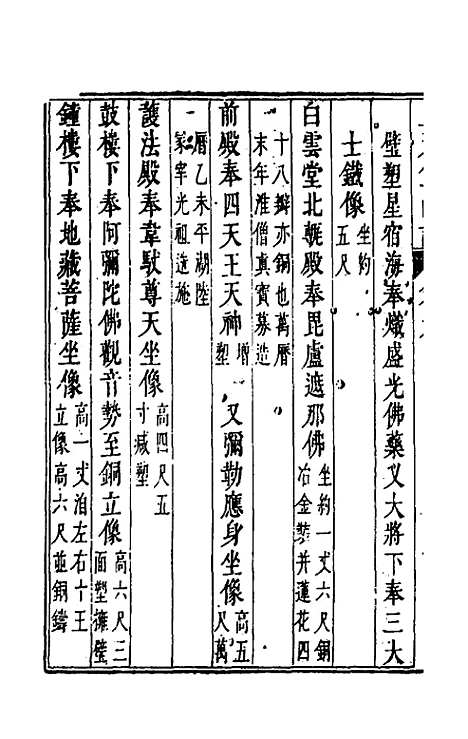 壁塑星宿海奉熾盛光佛藥叉大將下奉三大
士鐵像坐約五尺
白雲堂北毗殿奉毘盧遮那佛坐約一丈六尺銅冶金裝并蓮花四
十八瓣亦銅也萬曆末年淮僧真實募造
前殿奉四天王天神增塑又彌勒應身坐像高五尺萬
曆乙未平湖陸冢宰光祖造施
護法殿奉韋馱尊天坐像高四尺五寸減塑
鼓樓下奉阿彌陀佛觀音勢至銅立像高六尺三面塑擁壁
鐘樓下奉地藏菩薩坐像高一丈洎左右十王立像高六尺並銅鑄